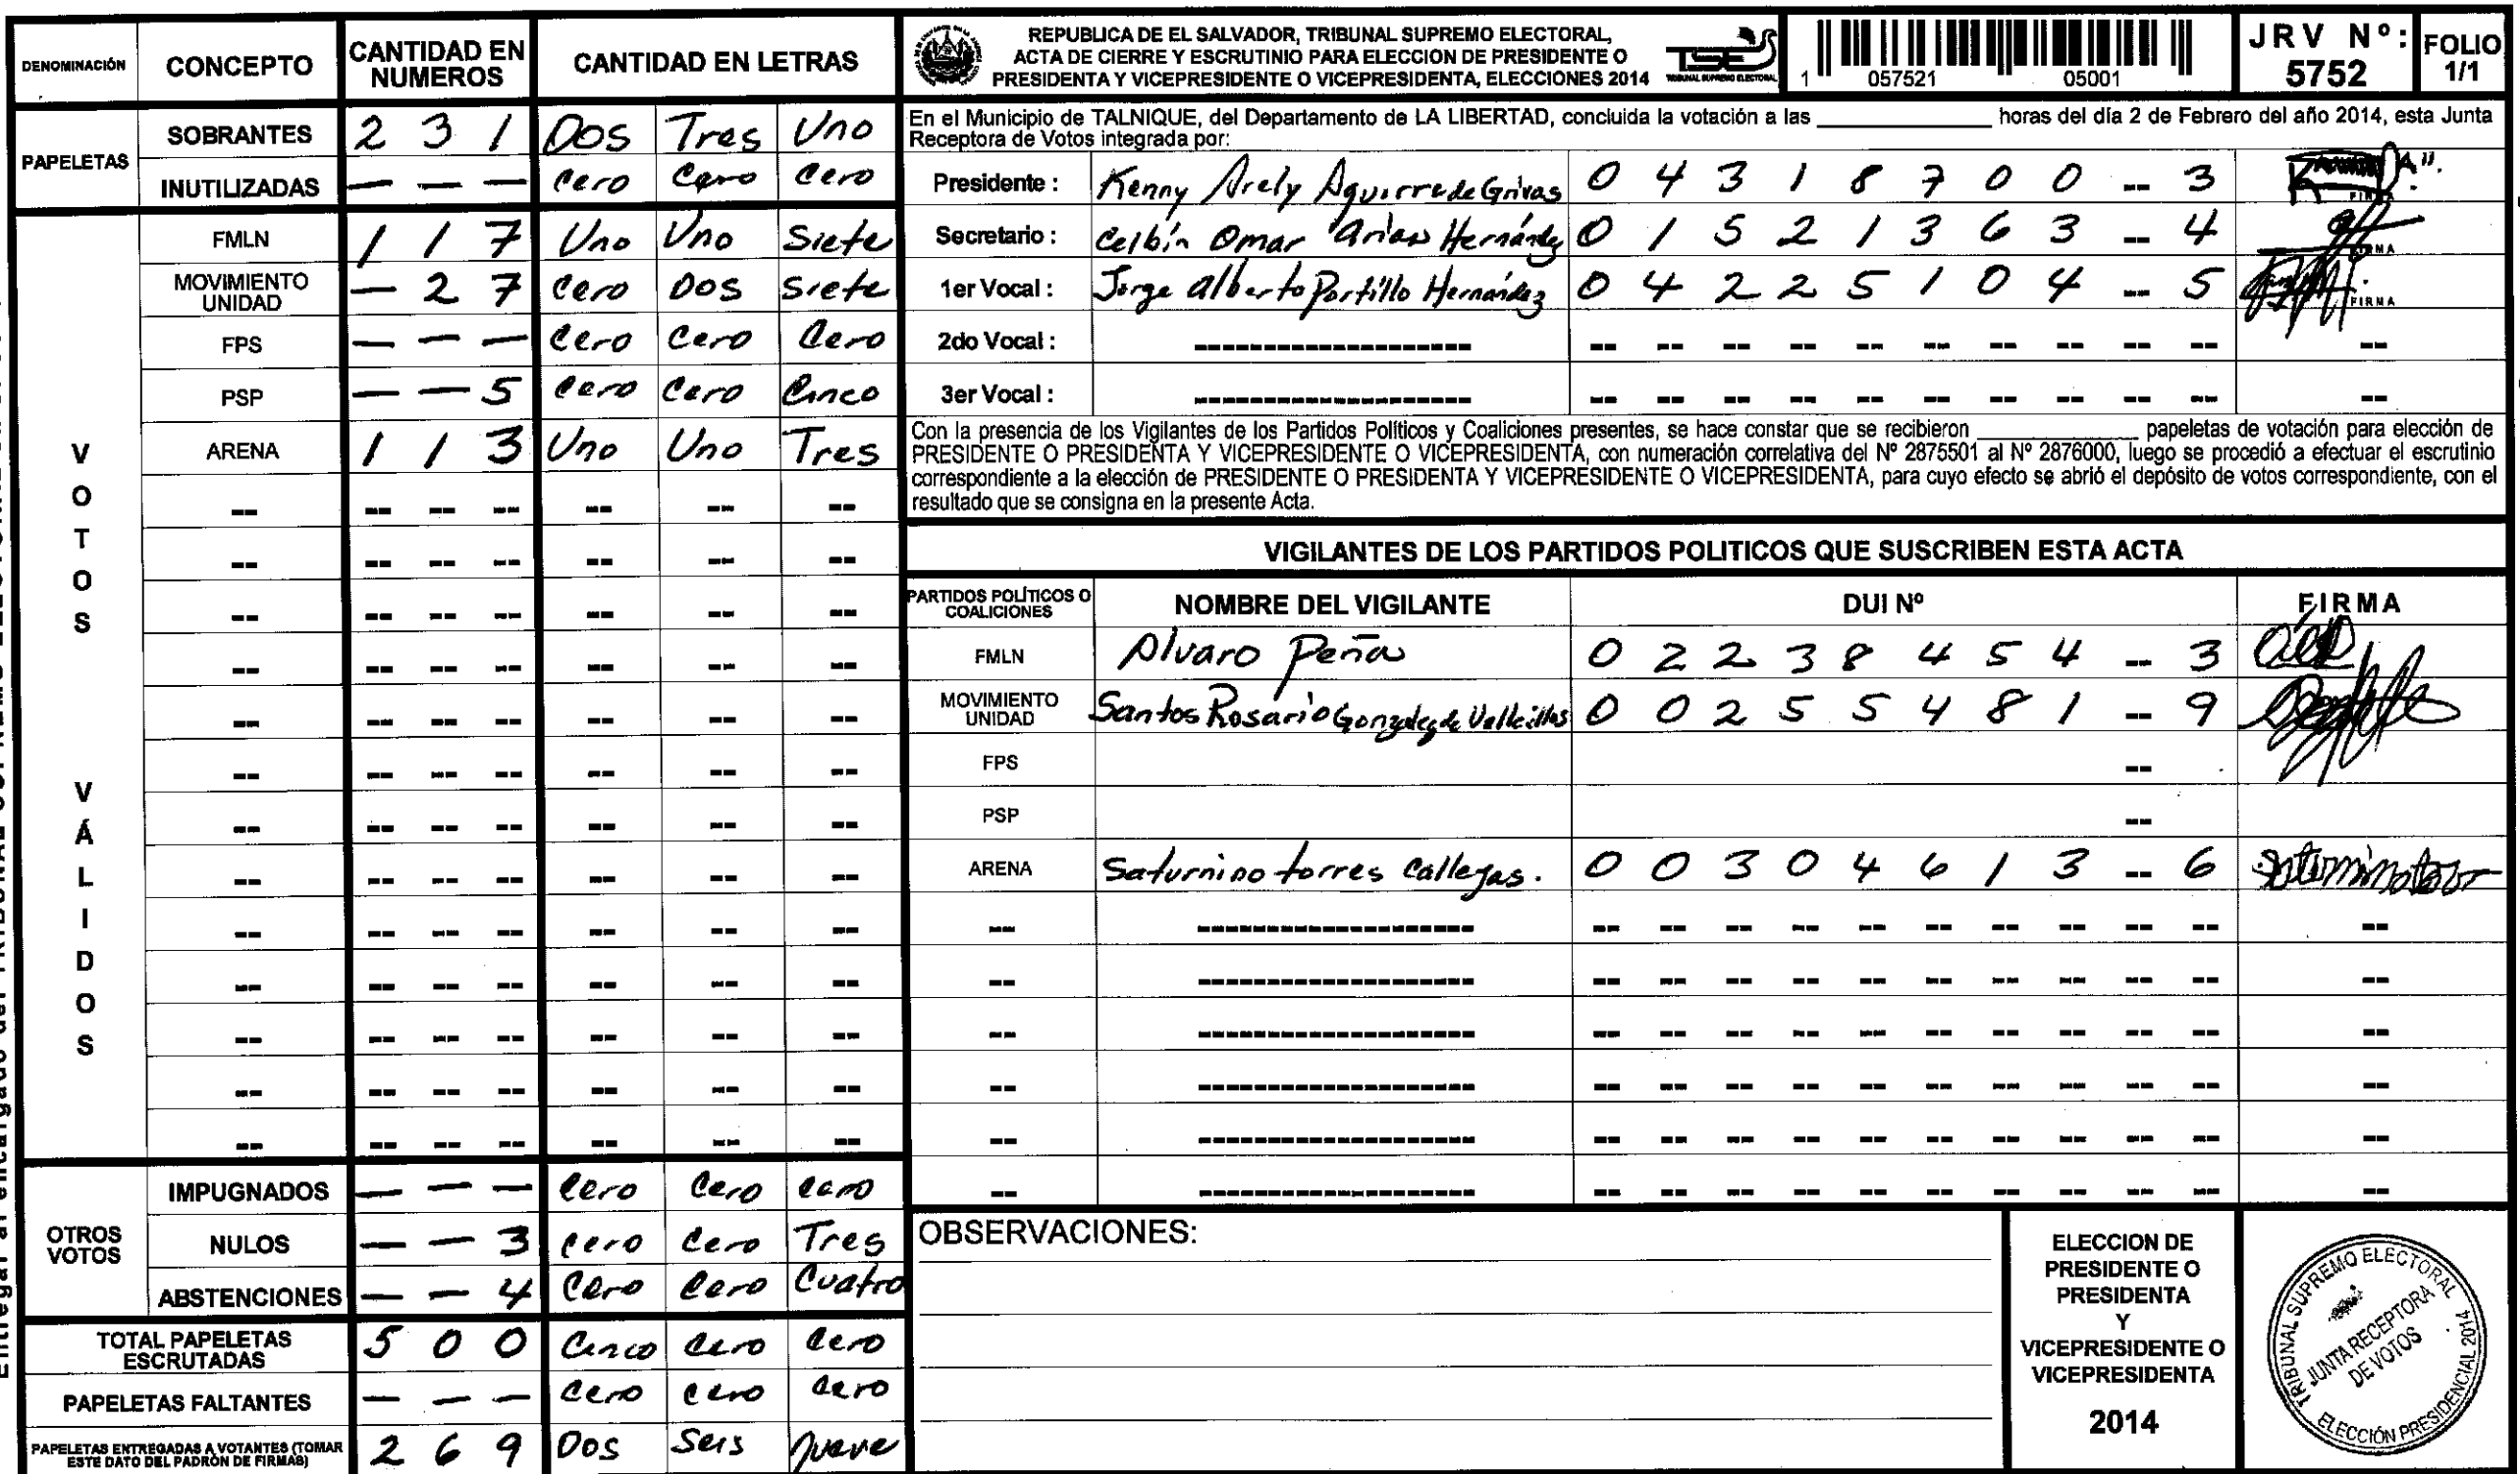 DENOMINACIÓN CONCEPTO CANTIDAD EN NUMEROS CANTIDAD EN LETRAS
PAPELETAS
SOBRANTES 2 3 1 Dos Tres Uno
INUTILIZADAS — — — Cero Cero Cero
VOTOS VÁLIDOS
FMLN 1 1 7 Uno Uno Siete
MOVIMIENTO UNIDAD — 2 7 Cero Dos Siete
FPS — — — Cero Cero Cero
PSP — — 5 Cero Cero Cinco
ARENA 1 1 3 Uno Uno Tres
OTROS VOTOS
IMPUGNADOS — — — Cero Cero Cero
NULOS — — 3 Cero Cero Tres
ABSTENCIONES — — 4 Cero Cero Cuatro
TOTAL PAPELETAS ESCRUTADAS 5 0 0 Cinco Cero Cero
PAPELETAS FALTANTES — — — Cero Cero Cero
PAPELETAS ENTREGADAS A VOTANTES (TOMAR ESTE DATO DEL PADRÓN DE FIRMAS) 2 6 9 Dos Seis Nueve
REPUBLICA DE EL SALVADOR, TRIBUNAL SUPREMO ELECTORAL,
ACTA DE CIERRE Y ESCRUTINIO PARA ELECCION DE PRESIDENTE O
PRESIDENTA Y VICEPRESIDENTE O VICEPRESIDENTA, ELECCIONES 2014
TSE
TRIBUNAL SUPREMO ELECTORAL
1 057521 05001
JRV Nº: 5752
FOLIO 1/1
En el Municipio de TALNIQUE, del Departamento de LA LIBERTAD, concluida la votación a las ____________ horas del día 2 de Febrero del año 2014, esta Junta
Receptora de Votos integrada por:
Presidente : Kenny Arely Aguirre de Grivas 0 4 3 1 8 7 0 0 -- 3 FIRMA
Secretario : Celbín Omar Arias Hernández 0 1 5 2 1 3 6 3 -- 4 FIRMA
1er Vocal : Jorge Alberto Portillo Hernández 0 4 2 2 5 1 0 4 -- 5 FIRMA
2do Vocal :
3er Vocal :
Con la presencia de los Vigilantes de los Partidos Políticos y Coaliciones presentes, se hace constar que se recibieron ____________ papeletas de votación para elección de
PRESIDENTE O PRESIDENTA Y VICEPRESIDENTE O VICEPRESIDENTA, con numeración correlativa del Nº 2875501 al Nº 2876000, luego se procedió a efectuar el escrutinio
correspondiente a la elección de PRESIDENTE O PRESIDENTA Y VICEPRESIDENTE O VICEPRESIDENTA, para cuyo efecto se abrió el depósito de votos correspondiente, con el
resultado que se consigna en la presente Acta.
VIGILANTES DE LOS PARTIDOS POLITICOS QUE SUSCRIBEN ESTA ACTA
PARTIDOS POLÍTICOS O COALICIONES NOMBRE DEL VIGILANTE DUI Nº FIRMA
FMLN Alvaro Peña 0 2 2 3 8 4 5 4 -- 3
MOVIMIENTO UNIDAD Santos Rosario Gonzalez de Vallecillos 0 0 2 5 5 4 8 1 -- 9
FPS --
PSP --
ARENA Saturnino torres Callejas. 0 0 3 0 4 6 1 3 -- 6
OBSERVACIONES:
ELECCION DE
PRESIDENTE O
PRESIDENTA
Y
VICEPRESIDENTE O
VICEPRESIDENTA
2014
TRIBUNAL SUPREMO ELECTORAL 2014
JUNTA RECEPTORA
DE VOTOS
ELECCIÓN PRESIDENCIAL